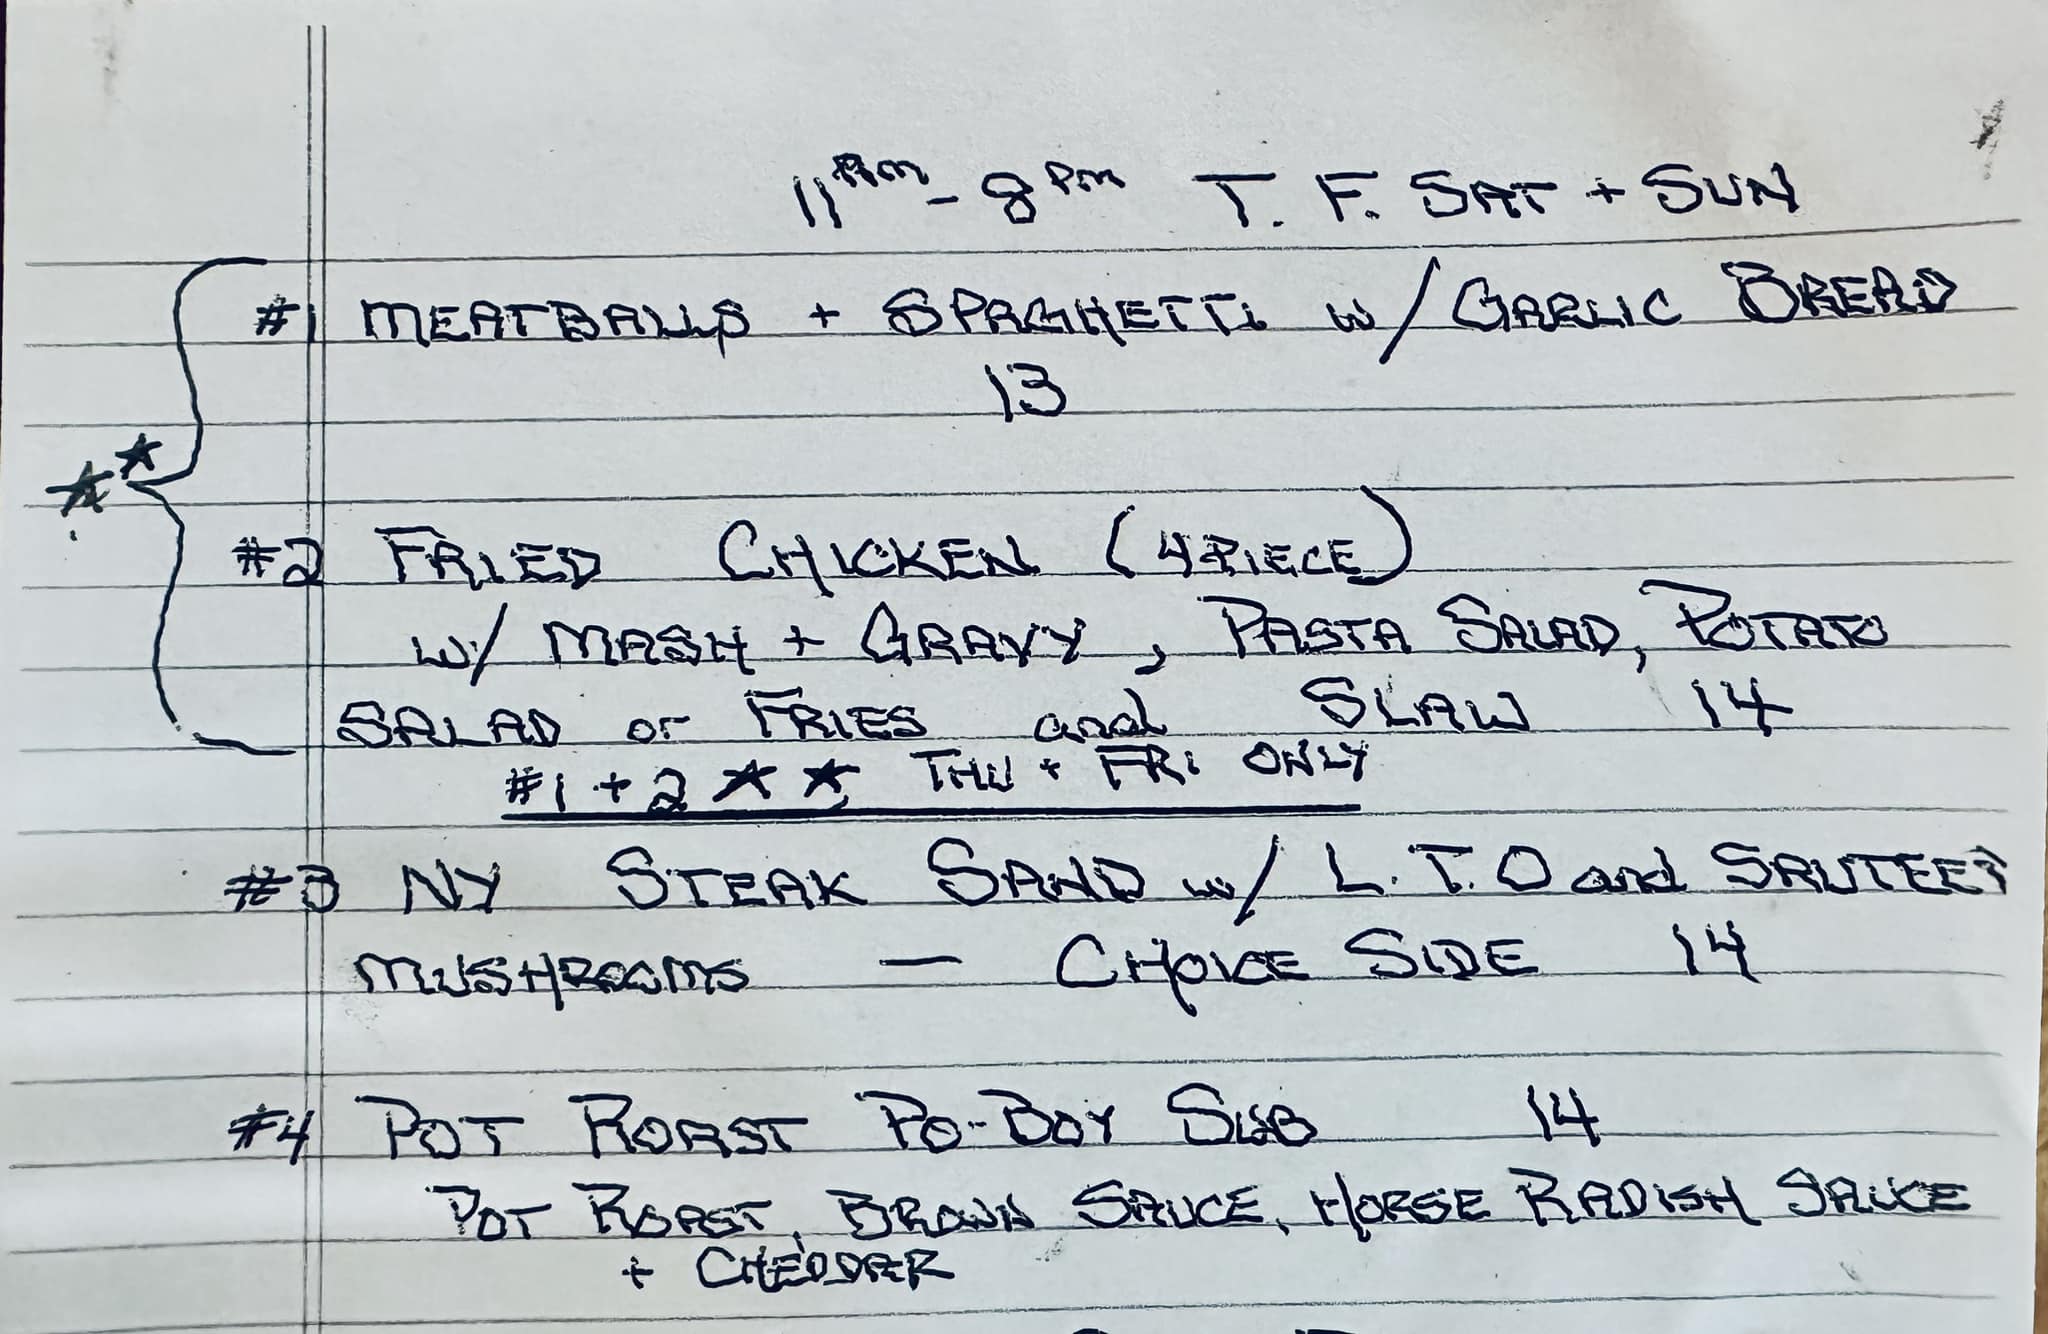 11AM - 8PM T. F. SAT + SUN
#1 MEATBALLS + SPAGHETTI w/ GARLIC BREAD
13
#2 FRIED CHICKEN (4 PIECE)
w/ MASH + GRAVY, PASTA SALAD, POTATO
SALAD or FRIES and SLAW 14
#1 + 2 ★ ★ THU + FRI ONLY
#3 NY STEAK SAND w/ L. T. O and SAUTEED
MUSHROOMS — CHOICE SIDE 14
#4 POT ROAST PO-BOY SUB 14
POT ROAST, BROWN SAUCE, HORSE RADISH SAUCE
+ CHEDDAR